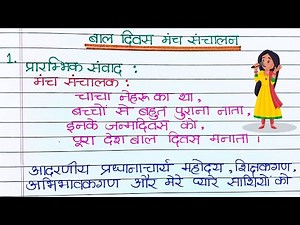 बाल दिवस मंच संचालन
1. प्रारम्भिक संवाद :
मंच संचालक :
चाचा नेहरू का था,
बच्चों से बहुत पुराना नाता,
इनके जन्मदिवस को,
पूरा देश बाल दिवस मनाता ।
आदरणीय प्रधानाचार्य महोदय, शिक्षकगण,
अभिभावकगण और मेरे प्यारे साथियों को